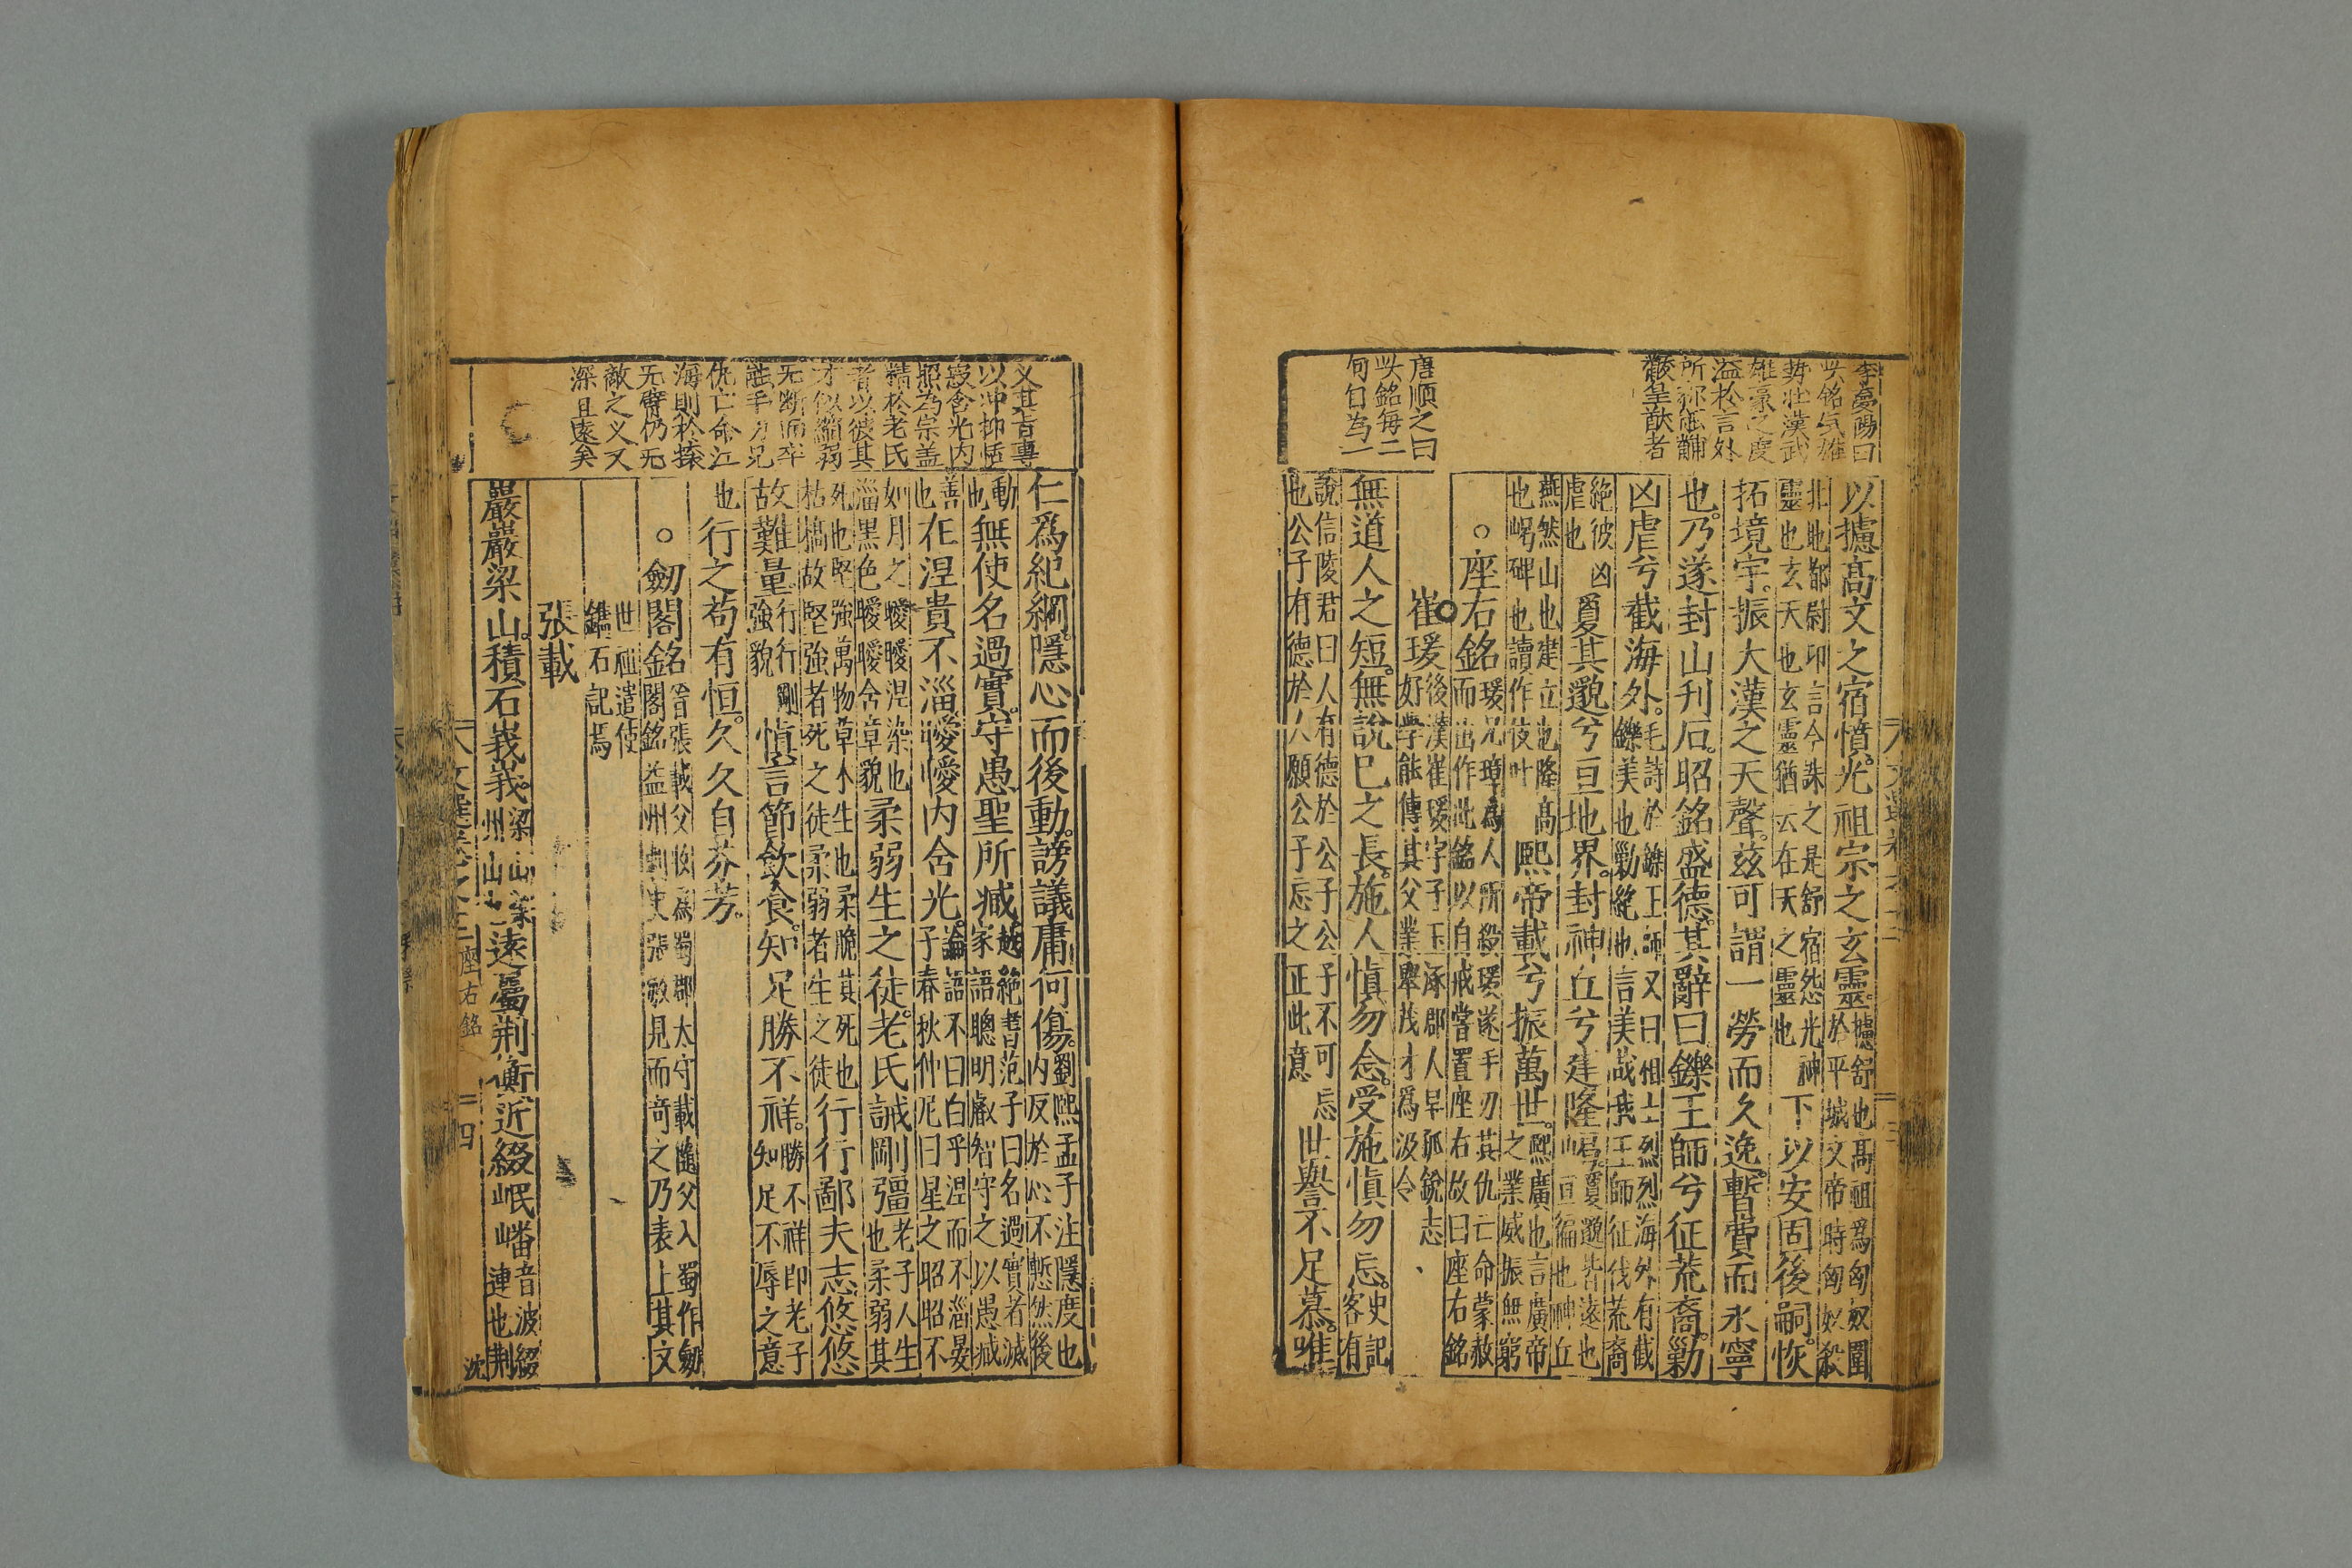 李夢陽曰
此銘氣雄
勢壯漢武
雄豪之度
溢於言外
唐順之曰
此銘每二
句自為一
以攄髙文之宿憤光祖宗之玄靈攄舒也髙祖爲匈奴圍
於平城文帝時匈奴殺
北地都尉卬言今誅之是舒宿怨光神
靈也玄天也玄靈猶云在天之靈也下以安固後嗣恢
拓境宇振大漢之天聲茲可謂一勞而久逸暫費而永寧
也乃遂封山刊石昭銘盛德其辭曰鑠王師兮征荒裔勦
凶虐兮截海外毛詩於鑠王師又曰相土烈烈海外有截
鑠美也勦絶也言美哉我王師征伐荒裔
絶彼凶
虐也敻其邈兮亘地界封神丘兮建隆嵑敻邈皆遠也
亘徧也神丘
燕然山也建立也隆髙
也嵑碑也讀作伎叶熙帝載兮振萬世熙廣也言廣帝
之業威振無窮
○座右銘瑗兄璋爲人所殺瑗遂手刃其仇亡命蒙赦
而出作此銘以自戒嘗置座右故曰座右銘
崔瑗後漢崔瑗字子玉涿郡人早孤銳志
好學能傳其父業舉茂才爲汲令
無道人之短無說巳之長施人慎勿念受施慎勿忘史記
客有
說信陵君曰人有德於公子公子不可忘
也公子有德於人願公子忘之正此意世譽不足慕唯
以冲抑恬
寂含光内
照為宗蓋
精於老氏
者以彼其
仁爲紀綱隱心而後動謗議庸何傷劉熙孟子注隱度也
内反於心不慙然後
動
也無使名過實守愚聖所臧越絶書范子曰名過實者滅
家語聰明睿智守之以愚臧
善
也在涅貴不淄曖曖内含光論語不曰白乎涅而不淄晏
子春秋仲尼曰星之昭昭不
如月之曖曖涅染也
淄黒色曖曖含章貌柔弱生之徒老氏誡剛彊老子人生
也柔弱其
死也堅強萬物草木生也柔脆其死也
枯槁故堅強者死之徒柔弱者生之徒行行鄙夫志悠悠
故難量行行剛
強貌慎言節飲食知足勝不祥勝不祥卽老子
知足不辱之意
也行之苟有恒久久自芬芳
○劒閣銘晉張載父收爲蜀郡太守載隨父入蜀作劒
閣銘益州刺史張敏見而奇之乃表上其文
世祖遣使
鐫石記焉
張載
巖巖梁山積石峩峩梁山梁
州山遠屬荆衡近綴岷嶓嶓音波綴
連也荆
座右銘
四
沈